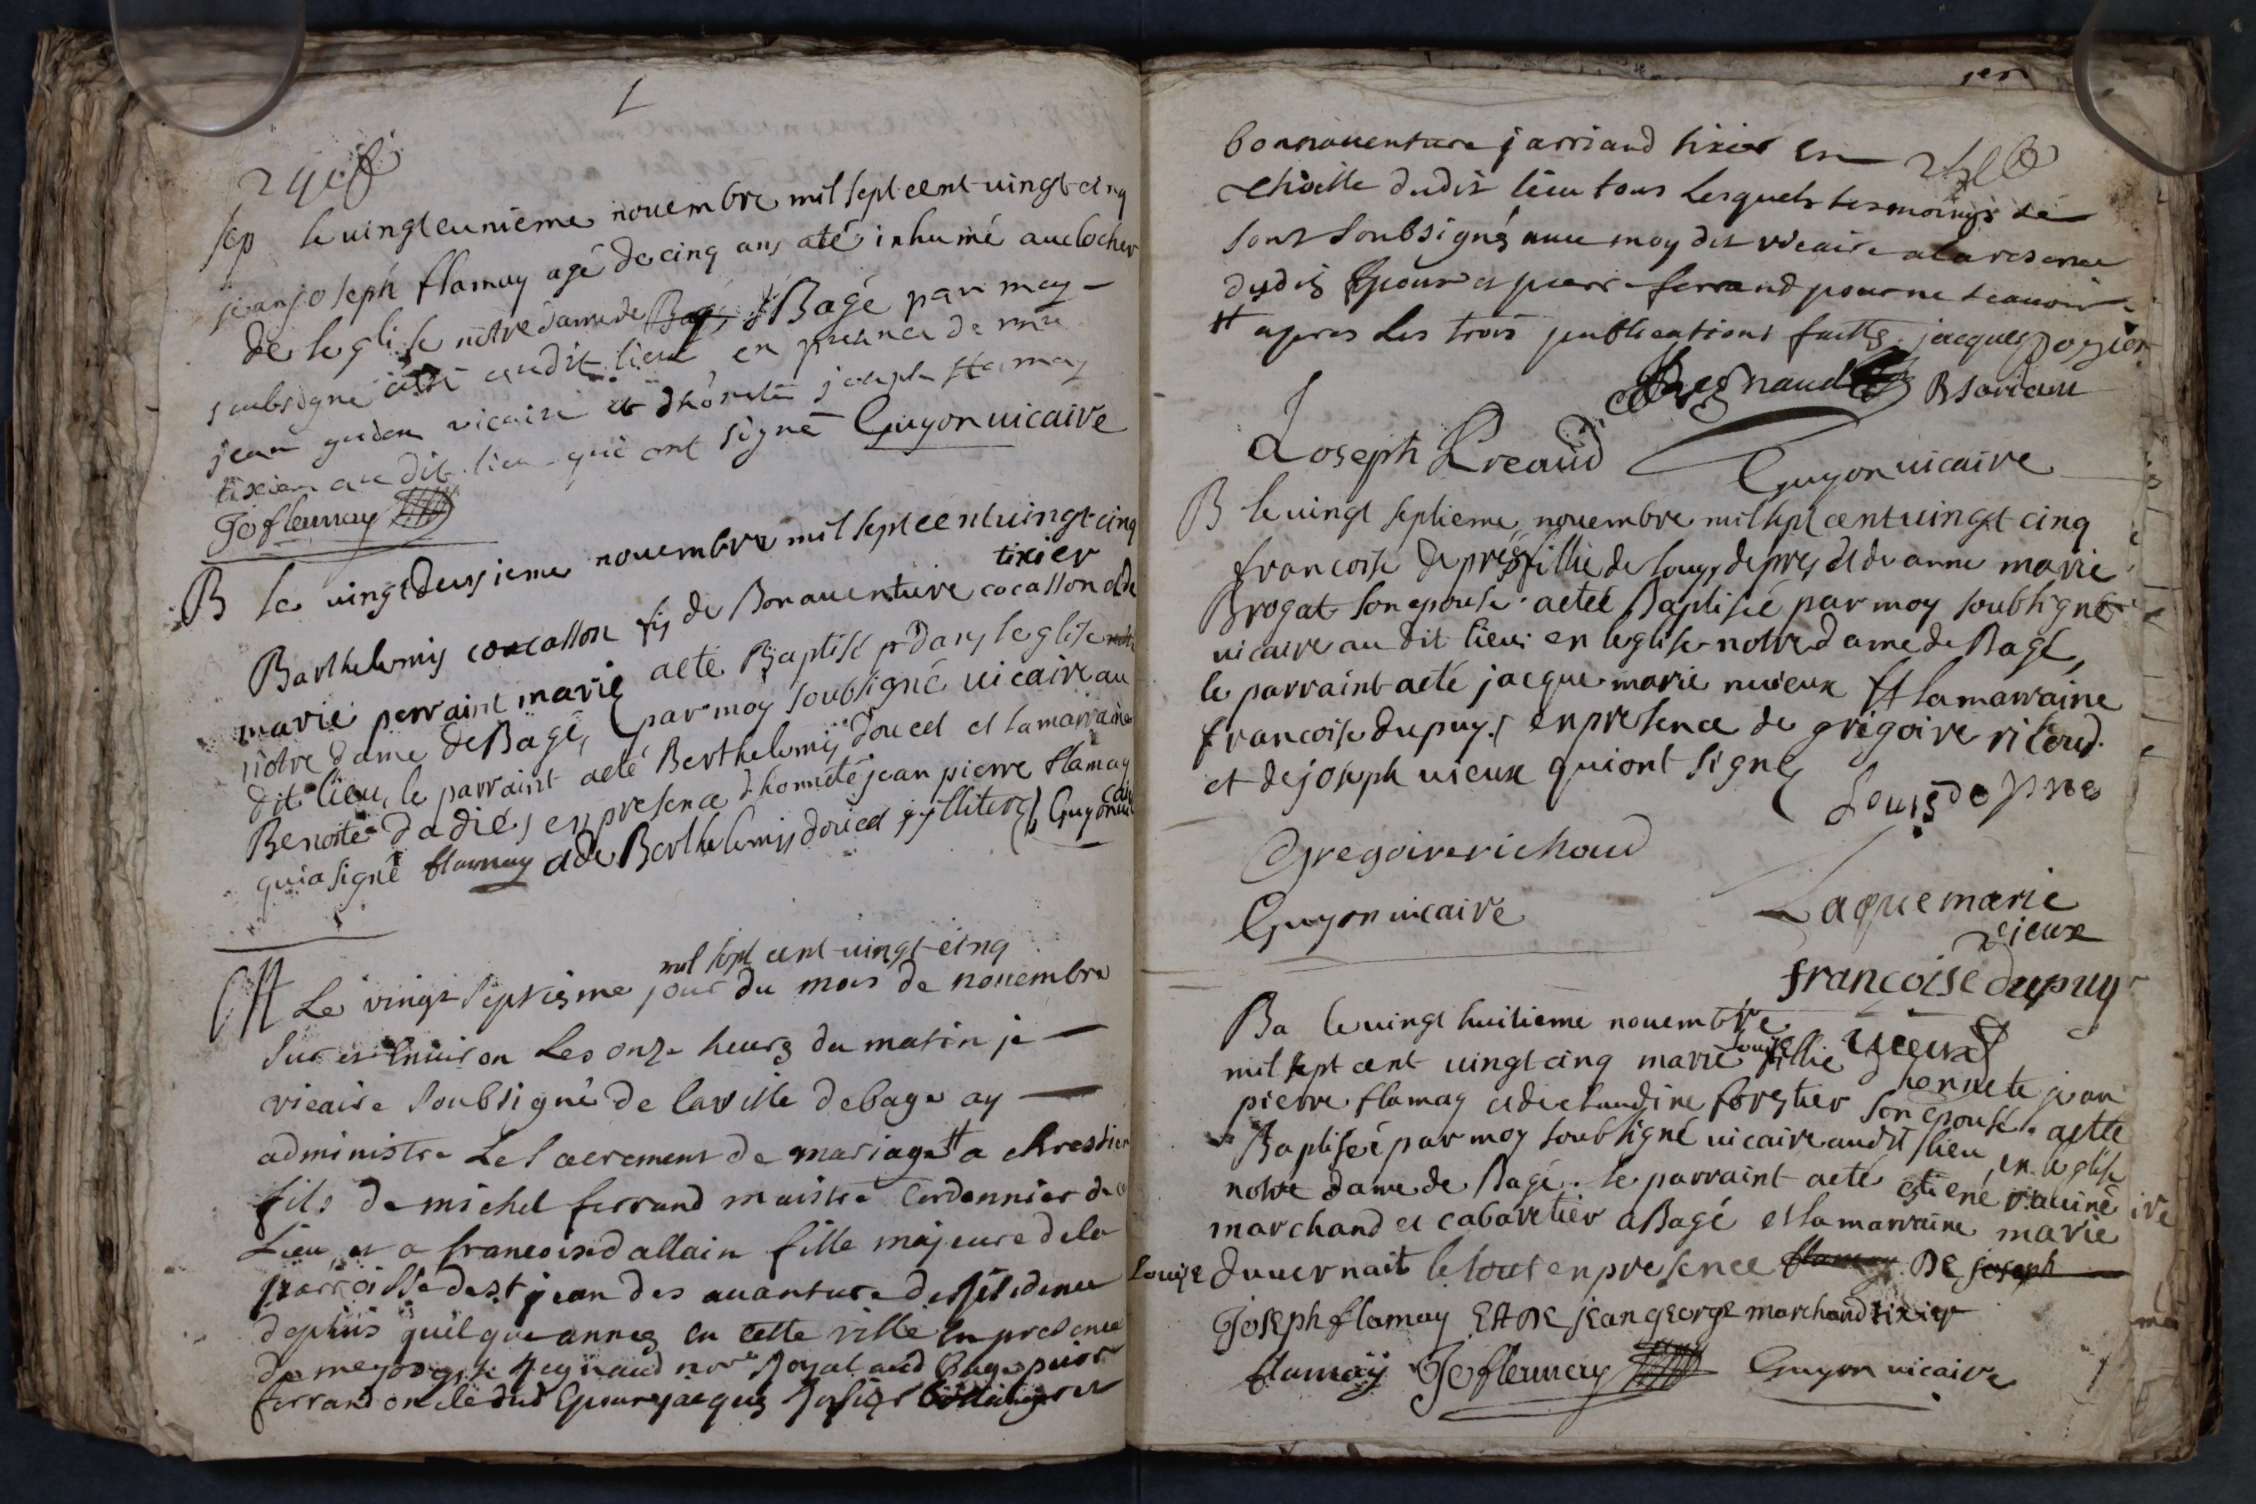 Sep le vingteunieme novembre mil sept cent vingt cinq
jean joseph flamay agé de cinq ans a été inhumé au clocher
de leglise notre dame de Bagé par moy
soubsigné audit lieu en presence de mre
jean guidon vicaire et d'honete joseph flamay
tixier audit lieu qui ont signé Guyon vicaire
Jo flamay
B le vingt deuxieme novembre mil sept cent vingt cinq
tixier
Barthelemy cocasson fis de Bonaventure cocasson et de
marie perraint marie a eté Baptisé dans leglise
notre dame de Bagé, par moy soubsigné vicaire au
dit lieu, le parraint a eté Berthelemy doucet et la marraine
Benoite dadié, en presence d'honneté jean pierre flamay
qui a signé flamay et de Berthelemy doucet illiteré Guyon vicaire
M mil sept cent vingt cinq
Le vingt septiesme jour du mois de novembre
sur et environ les onze heures du matin je
vicaire soubsigné de la ville de bage ay
administre le sacrement de mariage a chrestien
fils de michel ferrand maistre cordonnier de ce
Lieu et a francoise dallain fille majeure de la
parroisse de st jean des avanture de residence
depuis quelque année en cette ville en presence
de me Regnaud nore Royal aud Bage pierre
ferrand oncle dud Epoux jacques
bonnaventure jarriand tixier en
dudit lieu tous lesquels tesmoings se
sont soubsignés avec moy dit vicaire a la reserve
dudit Epoux et pierre ferrand pour ne scavoir
et apres les trois publications faittes. jacques
Regnaud
Joseph Preaud
Guyon vicaire
B le vingt septieme novembre mil sept cent vingt cinq
francoise deprés fillie de Louys deprés et de anne marie
Brogat son epouse a eteé Baptiseé par moy soubsigné
vicaire au dit lieu en leglise notre dame de Bagé,
le parraint a eté jacque marie vieux et la marraine
francoise dupuy. en presence de grégoire richoud
et de joseph vieux qui ont signé
Louis de pres
Gregoire richoud
Guyon vicaire
Jaque marie
vieux
francoise dupuy
vieux
Ba le vingt huitieme novembre
mil sept cent vingt cinq marie louise fillie
d'honnete jean
pierre flamay et de claudine forestier son epouse a eteé
Baptiseé par moy soubsigné vicaire audit lieu, en leglise
notre dame de Bagé. le parraint a eté etiene
marchand et cabaretier a Bagé et la marraine marie
Louise duvernait le tout en presence flamay de joseph
joseph flamay et de jean george marchand tixier
flamay Jo flamay Guyon vicaire